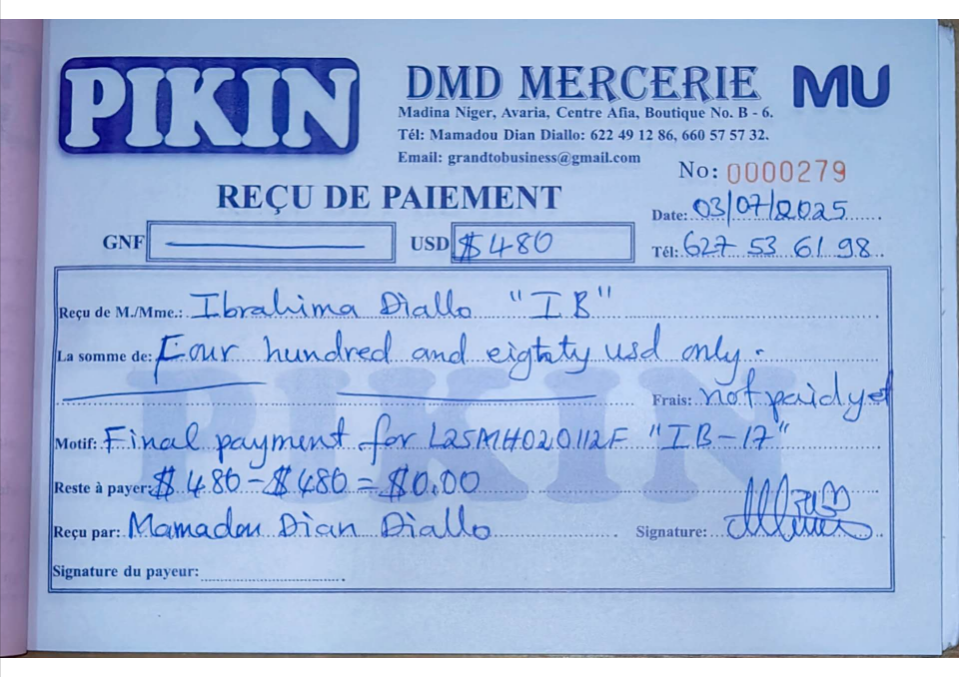 PIKIN
DMD MERCERIE
MU
Madina Niger, Avaria, Centre Afia, Boutique No. B - 6.
Tél: Mamadou Dian Diallo: 622 49 12 86, 660 57 57 32.
Email: grandtobusiness@gmail.com
No: 0000279
REÇU DE PAIEMENT
Date: 03/07/2025
GNF
USD $480
Tél: 627 53 61 98
Reçu de M./Mme.: Ibrahima Diallo "IB"
La somme de: Four hundred and eigtaty usd only.
Frais: not paid yet
Motif: Final payment for L25MH020112F "IB-17"
Reste à payer: $480 - $480 = $0.00
Reçu par: Mamadou Dian Diallo
Signature:
Signature du payeur:
PIKIN